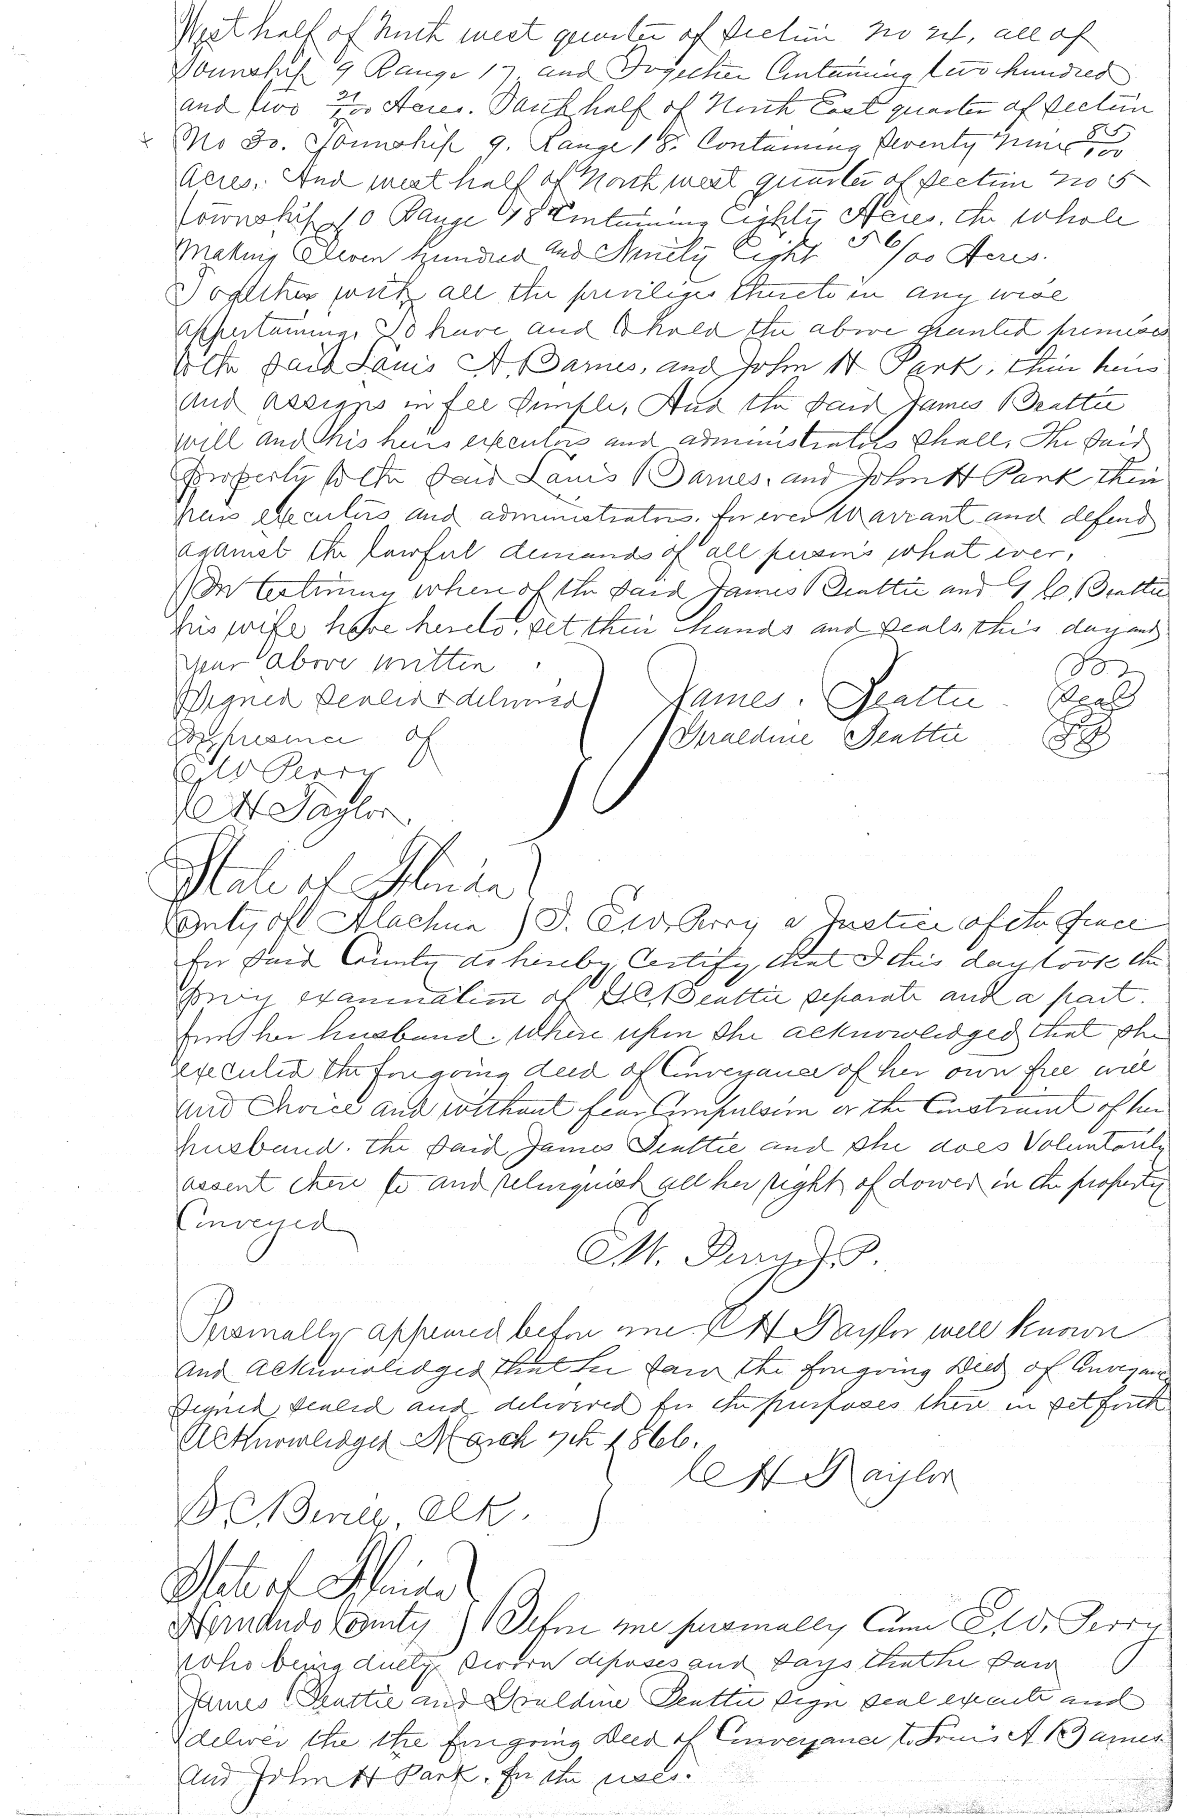 West half of North west quarter of Section No 24, all of
Township 9 Range 17 and Together Containing two hundred
and two 21/100 Acres. South half of North East quarter of Section
x No 30. Township 9. Range 18. Containing Seventy nine 85/100
Acres. And west half of North west quarter of Section No 5
township 10 Range 18 Containing Eighty Acres. the whole
Making Eleven hundred and Ninety Eight 56/100 Acres.
Together with all the priviliges thereto in any wise
appertaining. To have and to hold the above granted premises
to the said Louis A. Barnes, and John H Park, their heirs
and assigns in fee Simple, And the said James Beattie
will and his heirs executors and administrators Shall, The said
property to the said Louis Barnes, and John H Park their
heirs executors and administrators. for ever Warrant and defend
against the lawful demands of all person's what ever,
In testimony where of the said James Beattie and G C. Beattie
his wife have hereto. set their hands and seals, this day and
year above written
Signed Sealed & delivered James. Beattie Seal
In presence of Geraldine Beattie
E W Perry
C H Taylor.
State of Florida
County of Alachua ) I. E.W. Perry a Justice of the Peace
for said County do hereby Certify, that I this day took the
privy examination of G.C. Beattie separate and a part.
from her husband. where upon she acknowledged that she
executed the foregoing deed of Conveyance of her own free will
and Choice and without fear Compulsion or the Constraint of her
husband. the said James Beattie and she does Voluntarily
assent there to and relinquish all her right of dower in the property
Conveyed
E.W. Perry J.P.
Personally appeared before me C H Taylor well known
and acknowledged that he saw the foregoing Deed of Conveyance
signed, sealed and delivered for the purposes there in set forth
Acknowledged March 7th 1866.
C H Taylor
Clk.
State of Florida
Hernando County ) Before me personally Came E.W. Perry
who being duely sworn deposes and says that he saw
James Beattie and Geraldine Beattie sign seal execute and
deliver the the foregoing Deed of Conveyance to Louis A. Barnes
and John H Park. for the uses.